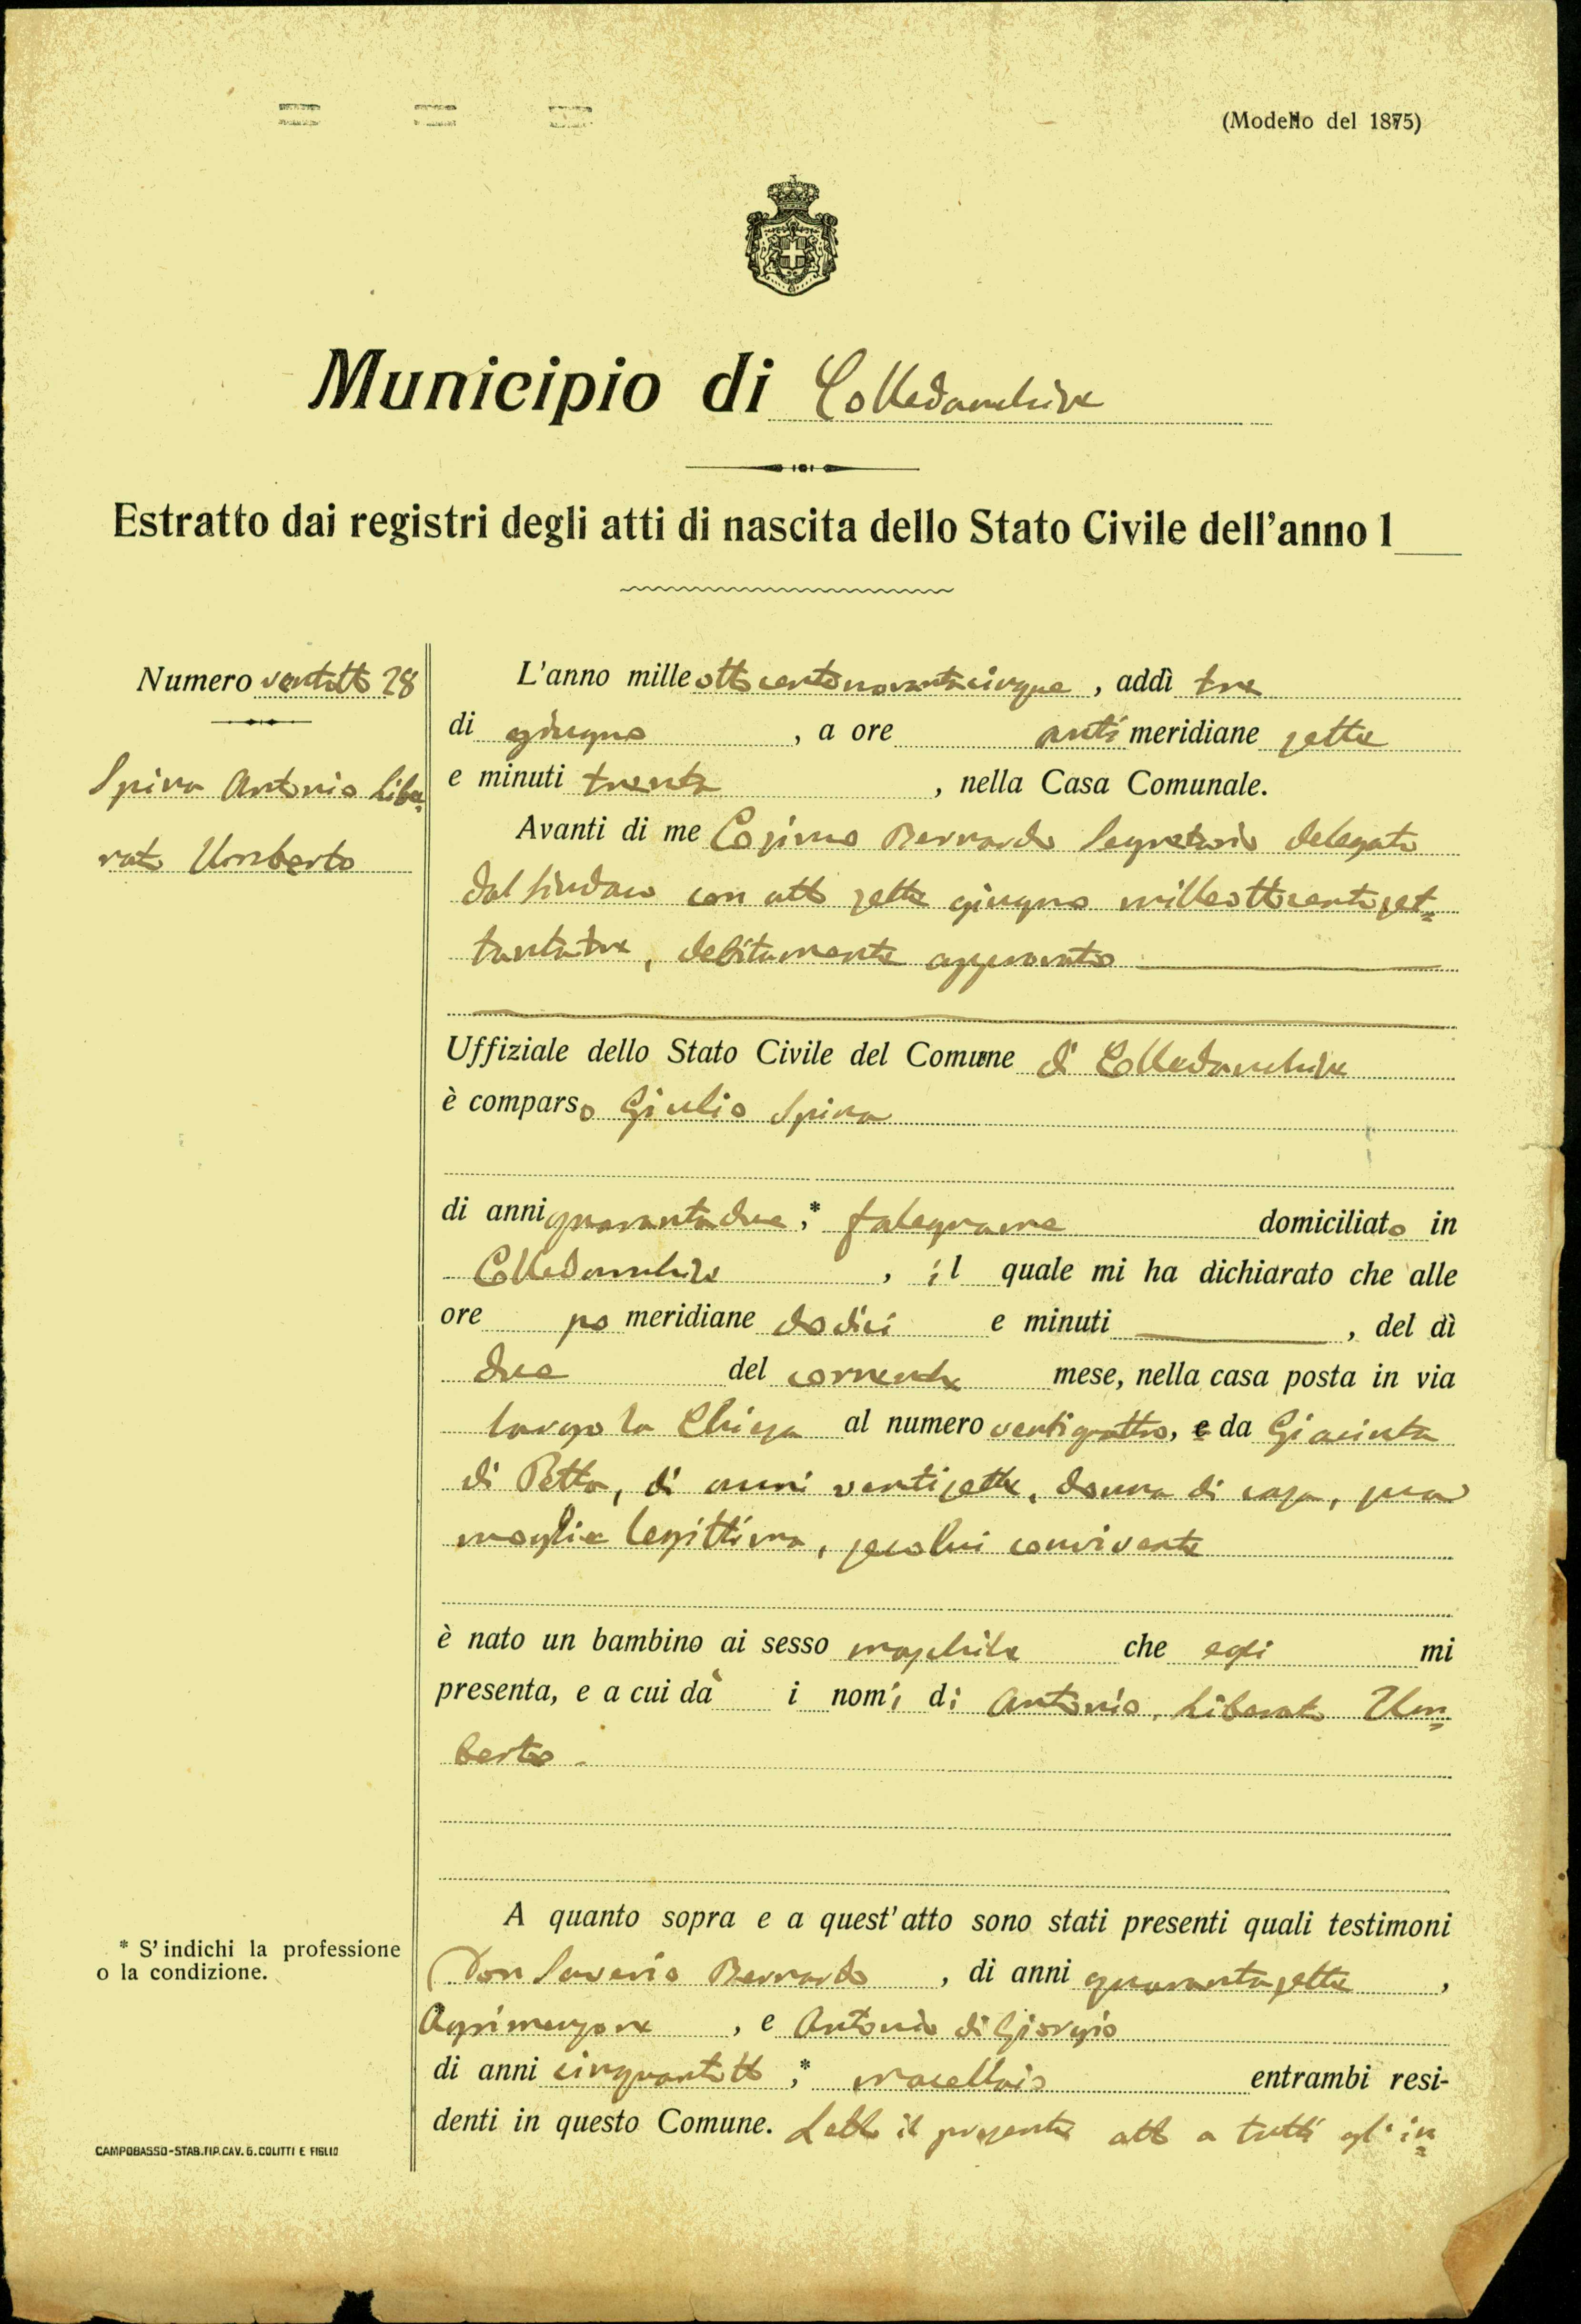 (Modello del 1875)
Municipio di Colledanchise
Estratto dai registri degli atti di nascita dello Stato Civile dell'anno 1
Numero ventotto 28
Spina Antonio Libe=
rato Umberto
L'anno mille ottocentonovantacinque, addì tre
di giugno, a ore anti meridiane sette
e minuti trenta, nella Casa Comunale.
Avanti di me Cosimo Bernardo Segretario delegato
dal Sindaco con atto sette giugno milleottocentoset=
tantatre, debitamente approvato
Uffiziale dello Stato Civile del Comune di Colledanchise
è comparso Giulio Spina
di anni quarantadue,* falegname domiciliato in
Colledanchise, il quale mi ha dichiarato che alle
ore po meridiane dodici e minuti , del dì
due del corrente mese, nella casa posta in via
largo la Chiesa al numero ventiquattro, e da Giacinta
di Petta, di anni ventisette, donna di casa, sua
moglie legittima, secolui convivente
è nato un bambino ai sesso maschile che egli mi
presenta, e a cui dà i nomi di Antonio, Liberato Um=
berto.
A quanto sopra e a quest'atto sono stati presenti quali testimoni
Don Saverio Bernardo, di anni quarantasette,
Agrimensore, e Antonio di Giorgio
di anni cinquantotto,* macellaio entrambi resi-
denti in questo Comune. Letto il presente atto a tutti gl'in=
* S'indichi la professione
o la condizione.
CAMPOBASSO-STAB.TIP.CAV.G.COLITTI E FIGLIO